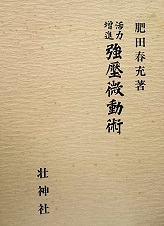 肥田春充著
活力
增進
強壓微動術
壮神社